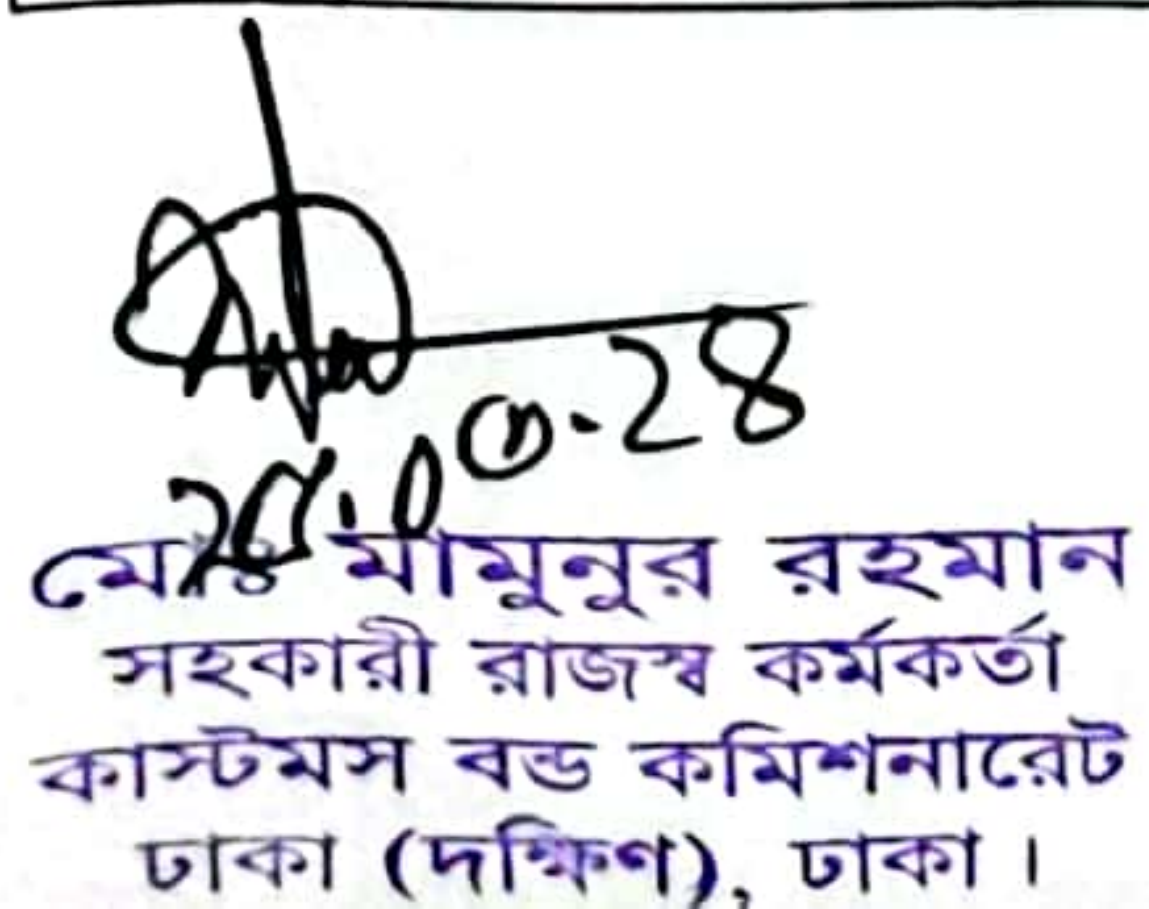 মোঃ মামুনুর রহমান
সহকারী রাজস্ব কর্মকর্তা
কাস্টমস বন্ড কমিশনারেট
ঢাকা (দক্ষিণ), ঢাকা।